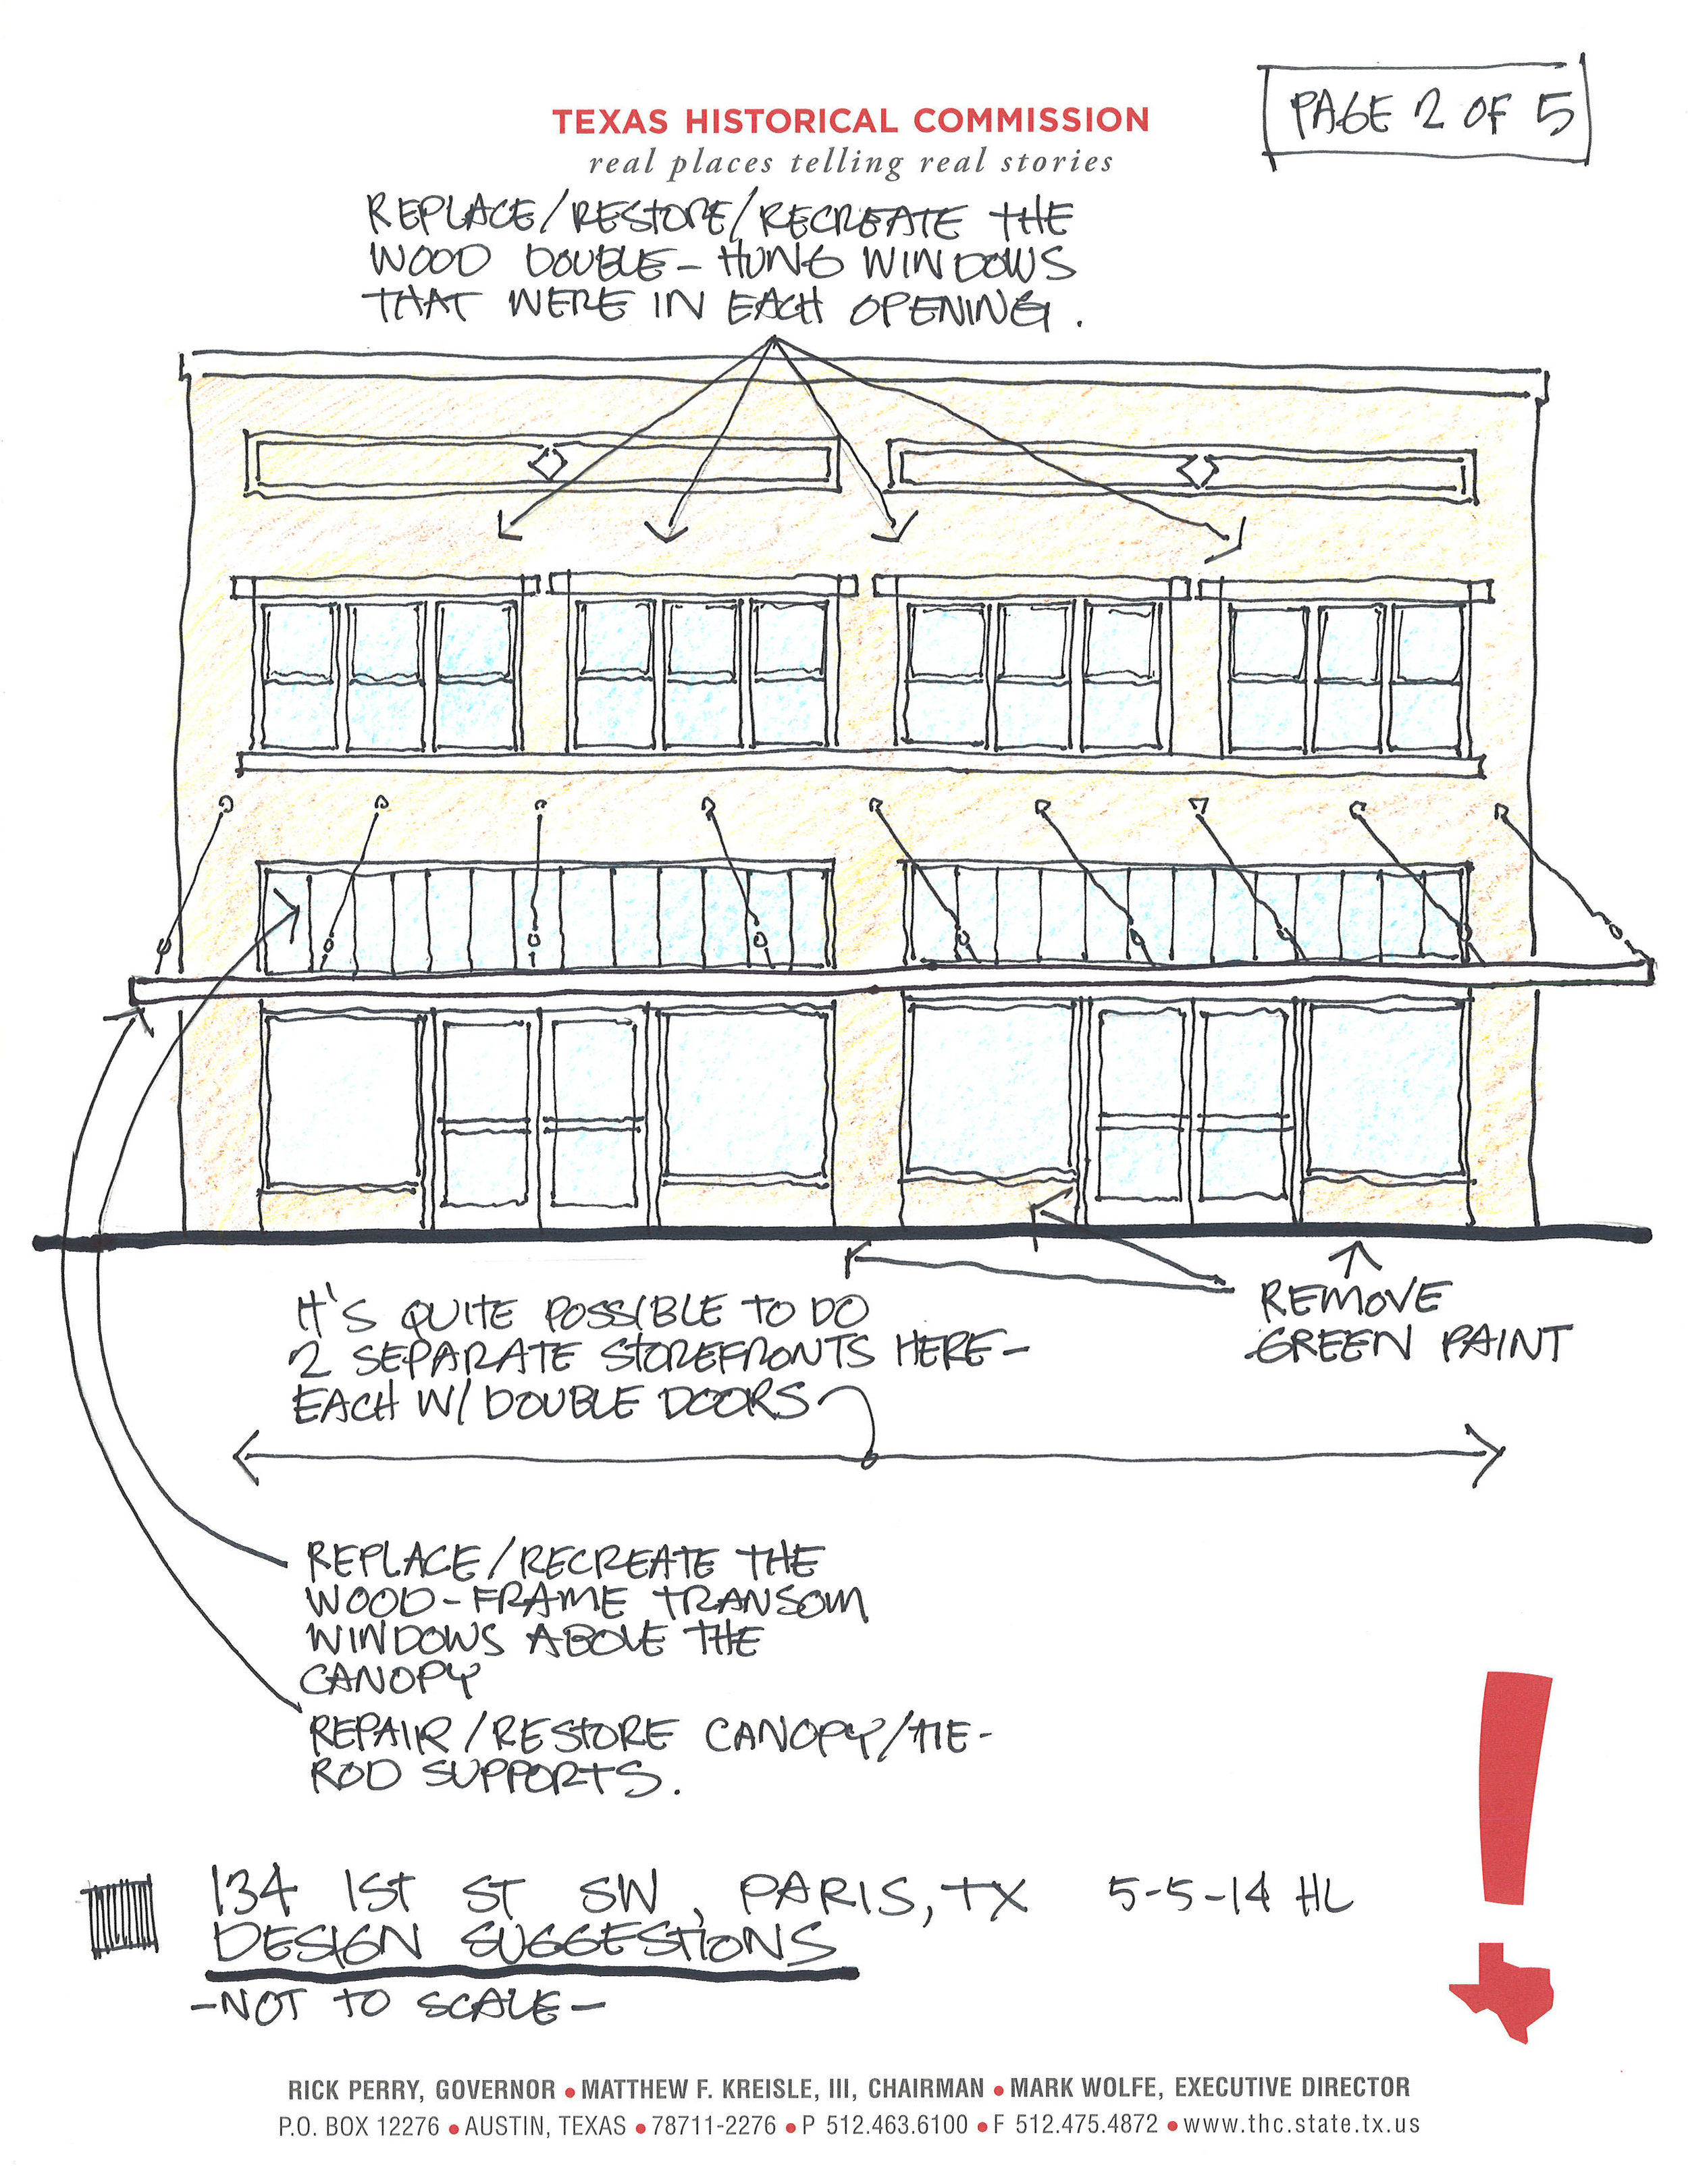 PAGE 2 OF 5
TEXAS HISTORICAL COMMISSION
real places telling real stories
REPLACE/RESTORE/RECREATE THE
WOOD DOUBLE-HUNG WINDOWS
THAT WERE IN EACH OPENING.
IT'S QUITE POSSIBLE TO DO
2 SEPARATE STOREFRONTS HERE-
EACH W/ DOUBLE DOORS
REMOVE
GREEN PAINT
REPLACE/RECREATE THE
WOOD-FRAME TRANSOM
WINDOWS ABOVE THE
CANOPY
REPAIR/RESTORE CANOPY/TIE-
ROD SUPPORTS.
134 1ST ST SW, PARIS, TX 5-5-14 HL
DESIGN SUGGESTIONS
-NOT TO SCALE-
RICK PERRY, GOVERNOR • MATTHEW F. KREISLE, III, CHAIRMAN • MARK WOLFE, EXECUTIVE DIRECTOR
P.O. BOX 12276 • AUSTIN, TEXAS • 78711-2276 • P 512.463.6100 • F 512.475.4872 • www.thc.state.tx.us